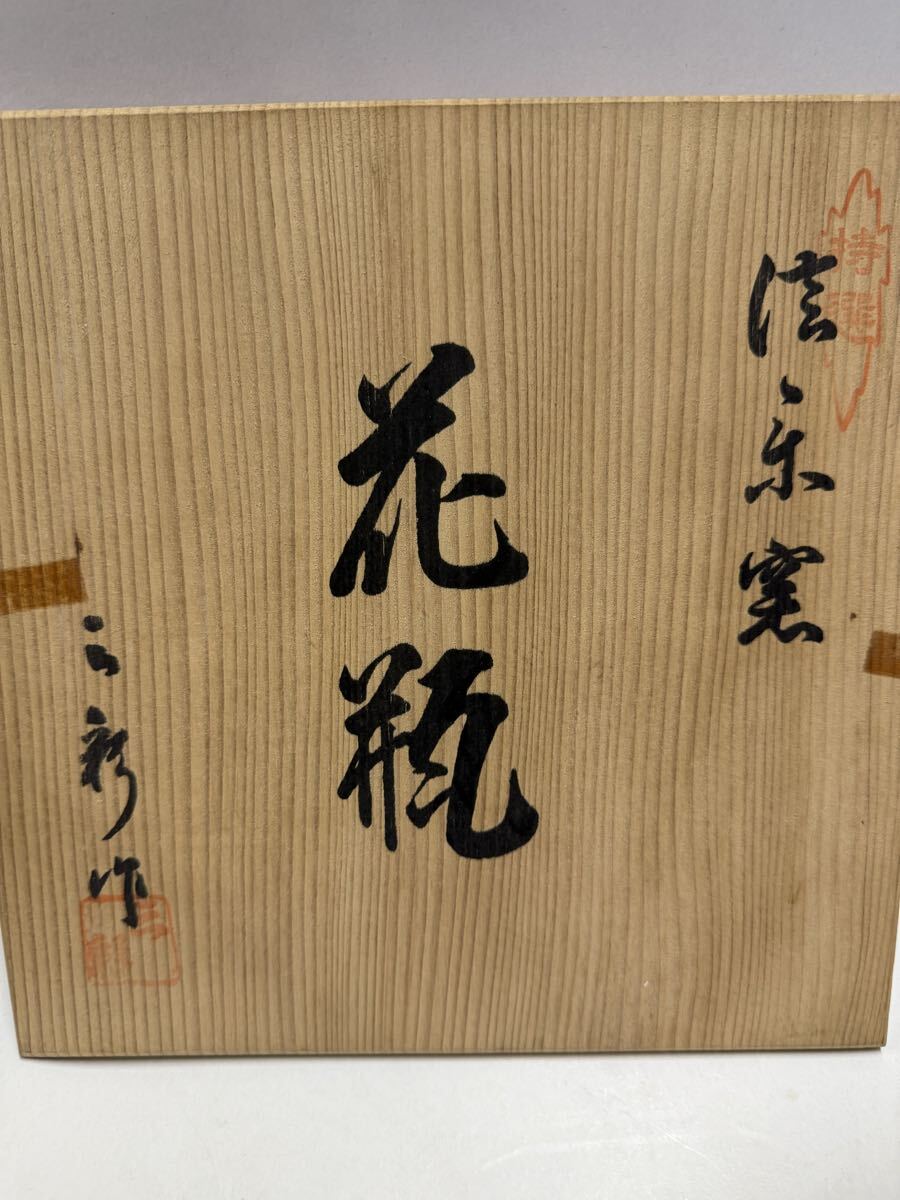 特選
信楽窯
花瓶
三彩作